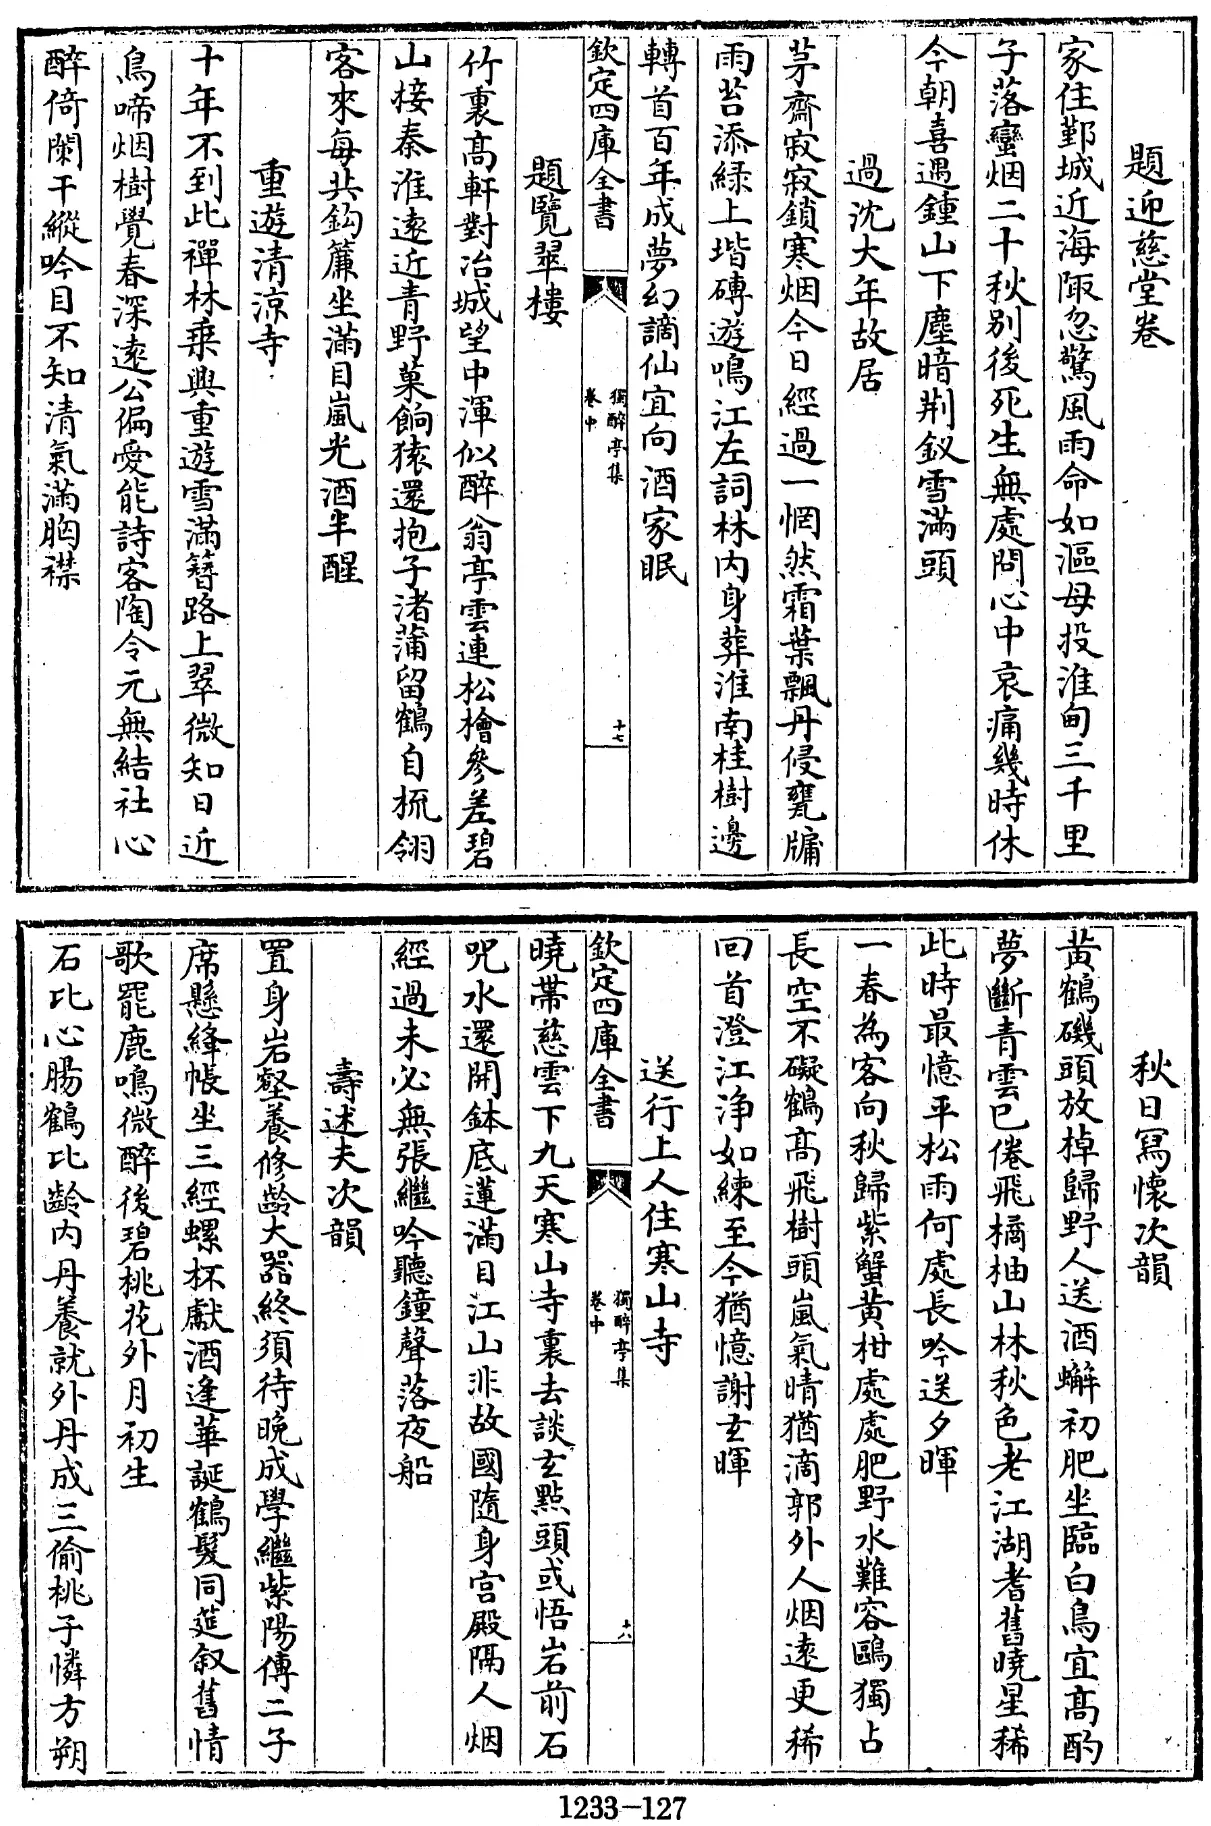 題迎慈堂卷
家住鄞城近海陬忽驚風雨命如漚母投淮甸三千里
子落蠻烟二十秋别後死生無處問心中哀痛幾時休
今朝喜遇鍾山下塵暗荆釵雪滿頭
過沈大年故居
茅齋寂寂鎖寒烟今日經過一惘然霜葉飄丹侵甕牖
雨苔添緑上堦磚遊鳴江左詞林内身葬淮南桂樹邊
轉首百年成夢幻謫仙宜向酒家眠
欽定四庫全書
獨醉亭集
卷中
十七
題覽翠樓
竹裏髙軒對冶城望中渾似醉翁亭雲連松檜參差碧
山接秦淮遠近青野菓餉猿還抱子渚蒲留鶴自梳翎
客來每共鈎簾坐滿目嵐光酒半醒
重遊清涼寺
十年不到此禪林乗興重遊雪滿簪路上翠微知日近
鳥啼烟樹覺春深遠公偏愛能詩客陶令元無結社心
醉倚闌干縱吟目不知清氣滿胸襟
秋日寫懷次韻
黄鶴磯頭放棹歸野人送酒蠏初肥坐臨白鳥宜髙酌
夢斷青雲已倦飛橘柚山林秋色老江湖耆舊曉星稀
此時最憶平松雨何處長吟送夕暉
一春為客向秋歸紫蟹黄柑處處肥野水難容鷗獨占
長空不礙鶴髙飛樹頭嵐氣晴猶滴郭外人烟遠更稀
回首澄江浄如練至今猶憶謝玄暉
送行上人住寒山寺
欽定四庫全書
獨醉亭集
卷中
十八
曉帶慈雲下九天寒山寺裏去談玄點頭或悟岩前石
咒水還開鉢底蓮滿目江山非故國隨身宫殿隔人烟
經過未必無張繼吟聽鐘聲落夜船
壽述夫次韻
置身岩壑養修齡大器終須待晚成學繼紫陽傳二子
席懸絳帳坐三經螺杯獻酒逢華誕鶴髮同筵叙舊情
歌罷鹿鳴微醉後碧桃花外月初生
石比心腸鶴比齡内丹養就外丹成三偷桃子憐方朔
1233-127